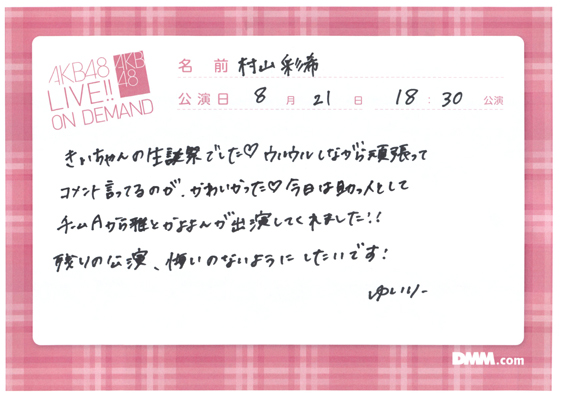 AKB48
LIVE!!
ON DEMAND
AKB
48
名 前 村山彩希
公演日 8 月 21 日 18:30 公演
きぃちゃんの生誕祭でした♡ウルウルしながら頑張って
コメント言ってるのが、かわいかった♡今日は助っ人として
チームAから雅とかよよんが出演してくれました!!
残りの公演、悔いのないようにしたいです!
ゆいりー
DMM.com